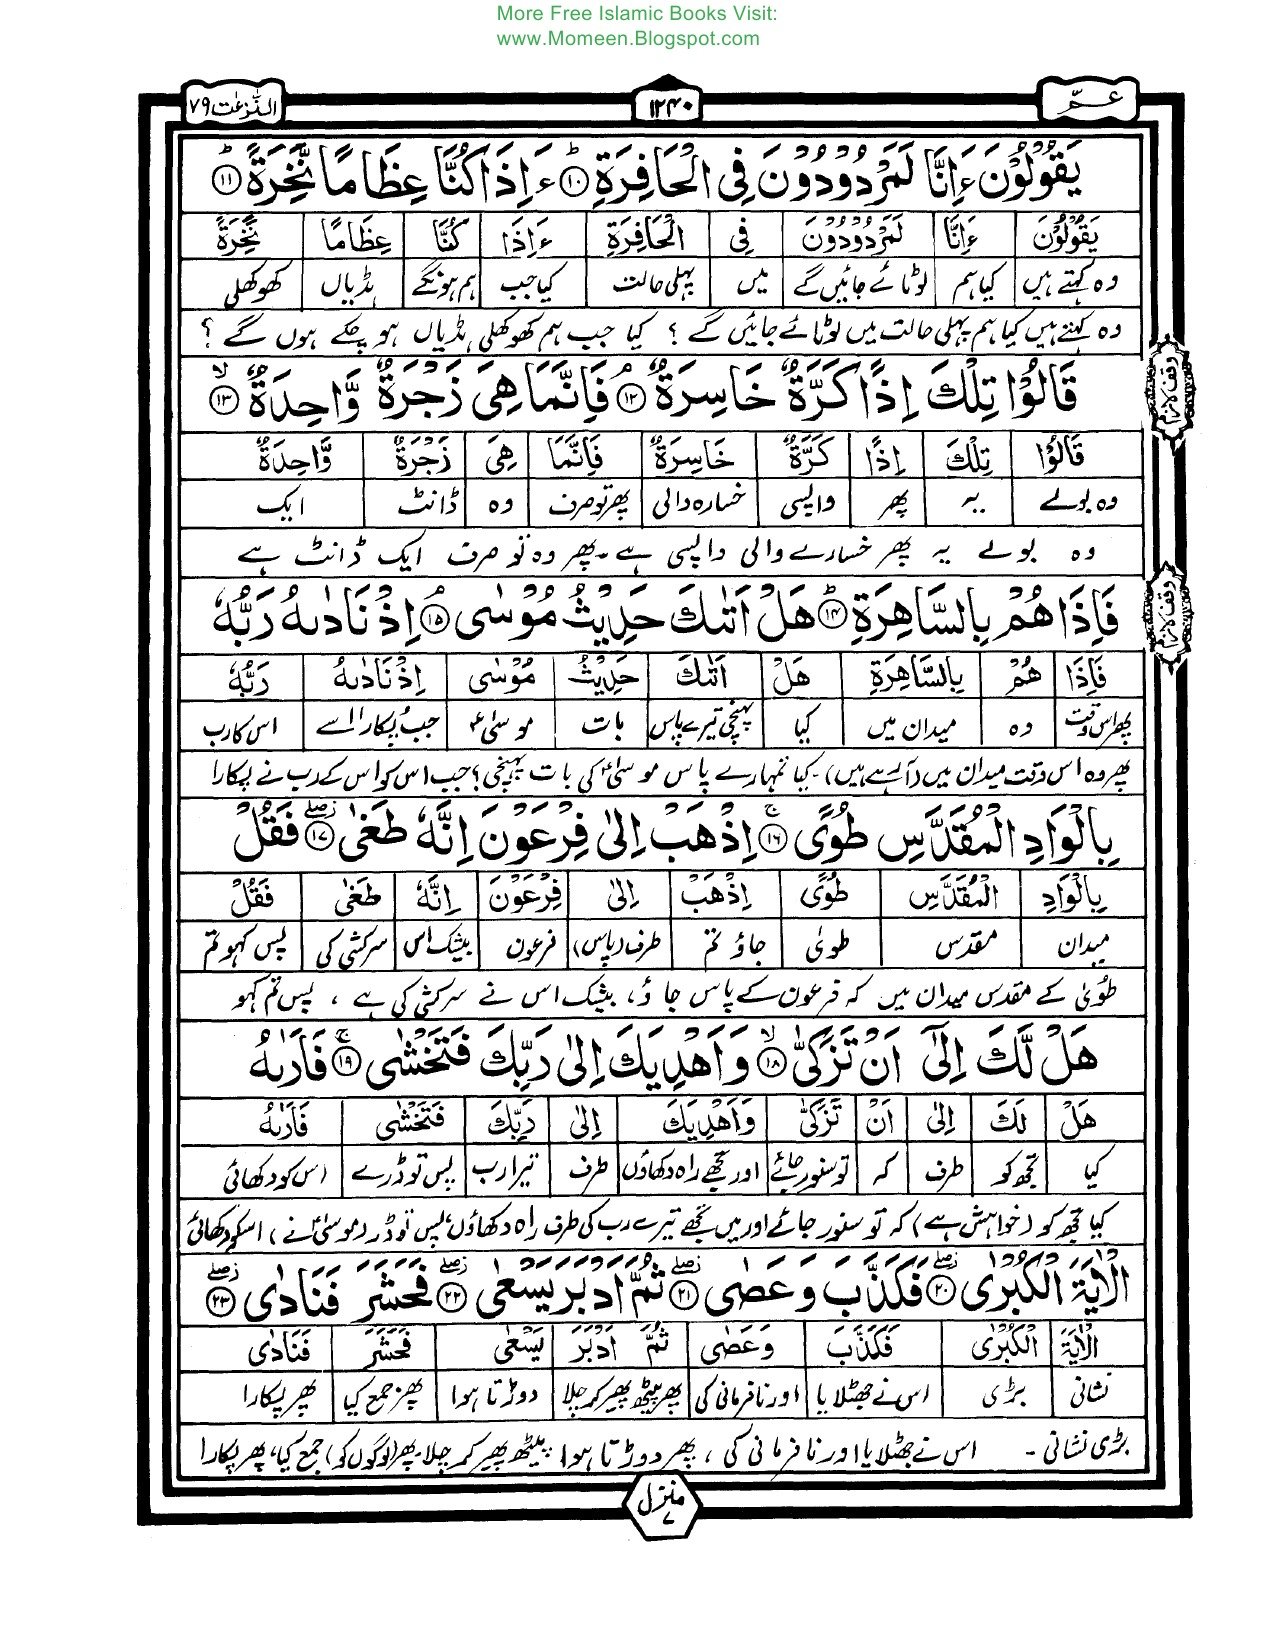 More Free Islamic Books Visit:
www.Momeen.Blogspot.com
عمّ ١٢٤٠ النّٰزعٰت ٧٩
يَقُوْلُوْنَ ءَاِنَّا لَمَرْدُوْدُوْنَ فِى الْحَافِرَةِ ؕ ١٠ ءَاِذَا كُنَّا عِظَامًا نَّخِرَةً ؕ ١١
يَقُوْلُوْنَ ءَاِنَّا لَمَرْدُوْدُوْنَ فِى الْحَافِرَةِ ءَاِذَا كُنَّا عِظَامًا نَّخِرَةً
وہ کہتے ہیں کیا ہم لوٹائے جائیں گے میں پہلی حالت کیا جب ہم ہونگے ہڈیاں کھوکھلی
وہ کہتے ہیں کیا ہم پہلی حالت میں لوٹائے جائیں گے ؟ کیا جب ہم کھوکھلی ہڈیاں ہو چکے ہوں گے ؟
قَالُوْا تِلْكَ اِذًا كَرَّةٌ خَاسِرَةٌ ۘ ١٢ فَاِنَّمَا هِىَ زَجْرَةٌ وَّاحِدَةٌ ۙ ١٣
وقف لازم
قَالُوْا تِلْكَ اِذًا كَرَّةٌ خَاسِرَةٌ فَاِنَّمَا هِىَ زَجْرَةٌ وَّاحِدَةٌ
وہ بولے یہ پھر واپسی خسارہ والی پھر تو صرف وہ ڈانٹ ایک
وہ بولے یہ پھر خسارے والی واپسی ہے ۔ پھر وہ تو صرف ایک ڈانٹ ہے
فَاِذَا هُمْ بِالسَّاهِرَةِ ؕ ١٤ هَلْ اَتٰىكَ حَدِيْثُ مُوْسٰى ۘ ١٥ اِذْ نَادٰىهُ رَبُّهٗ
وقف لازم
فَاِذَا هُمْ بِالسَّاهِرَةِ هَلْ اَتٰىكَ حَدِيْثُ مُوْسٰى اِذْ نَادٰىهُ رَبُّهٗ
پھر اس وقت وہ میدان میں کیا پہنچی تیرے پاس بات موسیٰؑ جب پکارا اسے اس کا رب
پھر وہ اس وقت میدان میں (آ رہے ہیں) ۔ کیا تمہارے پاس موسیٰؑ کی بات پہنچی ؟ جب اس کو اس کے رب نے پکارا
بِالْوَادِ الْمُقَدَّسِ طُوًى ۚ ١٦ اِذْهَبْ اِلٰى فِرْعَوْنَ اِنَّهٗ طَغٰى ۖ ١٧ فَقُلْ
بِالْوَادِ الْمُقَدَّسِ طُوًى اِذْهَبْ اِلٰى فِرْعَوْنَ اِنَّهٗ طَغٰى فَقُلْ
میدان مقدس طویٰ جاؤ تم طرف (پاس) فرعون بیشک اس سرکشی کی پس کہو تم
طُویٰ کے مقدس میدان میں کہ فرعون کے پاس جاؤ، بیشک اس نے سرکشی کی ہے ، پس تم کہو
هَلْ لَّكَ اِلٰٓى اَنْ تَزَكّٰى ۙ ١٨ وَاَهْدِيَكَ اِلٰى رَبِّكَ فَتَخْشٰى ۚ ١٩ فَاَرٰىهُ
هَلْ لَكَ اِلٰى اَنْ تَزَكّٰى وَاَهْدِيَكَ اِلٰى رَبِّكَ فَتَخْشٰى فَاَرٰىهُ
کیا تجھ کو طرف کہ تو سنور جائے اور تجھے راہ دکھاؤں طرف تیرا رب پس تو ڈرے اس کو دکھائی
کیا تجھ کو (خواہش ہے) کہ تو سنور جائے اور میں تجھے تیرے رب کی طرف راہ دکھاؤں پس تو ڈر (موسیٰؑ نے) اسکو دکھائی
الْاٰيَةَ الْكُبْرٰى ۖ ٢٠ فَكَذَّبَ وَعَصٰى ۖ ٢١ ثُمَّ اَدْبَرَ يَسْعٰى ۖ ٢٢ فَحَشَرَ فَنَادٰى ۖ ٢٣
الْاٰيَةَ الْكُبْرٰى فَكَذَّبَ وَعَصٰى ثُمَّ اَدْبَرَ يَسْعٰى فَحَشَرَ فَنَادٰى
نشانی بڑی اس نے جھٹلایا اور نافرمانی کی پھر پیٹھ پھیر کر چلا دوڑتا ہوا پھر جمع کیا پھر پکارا
بڑی نشانی ۔ اس نے جھٹلایا اور نافرمانی کی ، پھر دوڑتا ہوا پیٹھ پھیر کر چلا ۔ پھر (لوگوں کو) جمع کیا، پھر پکارا
منزل ٧